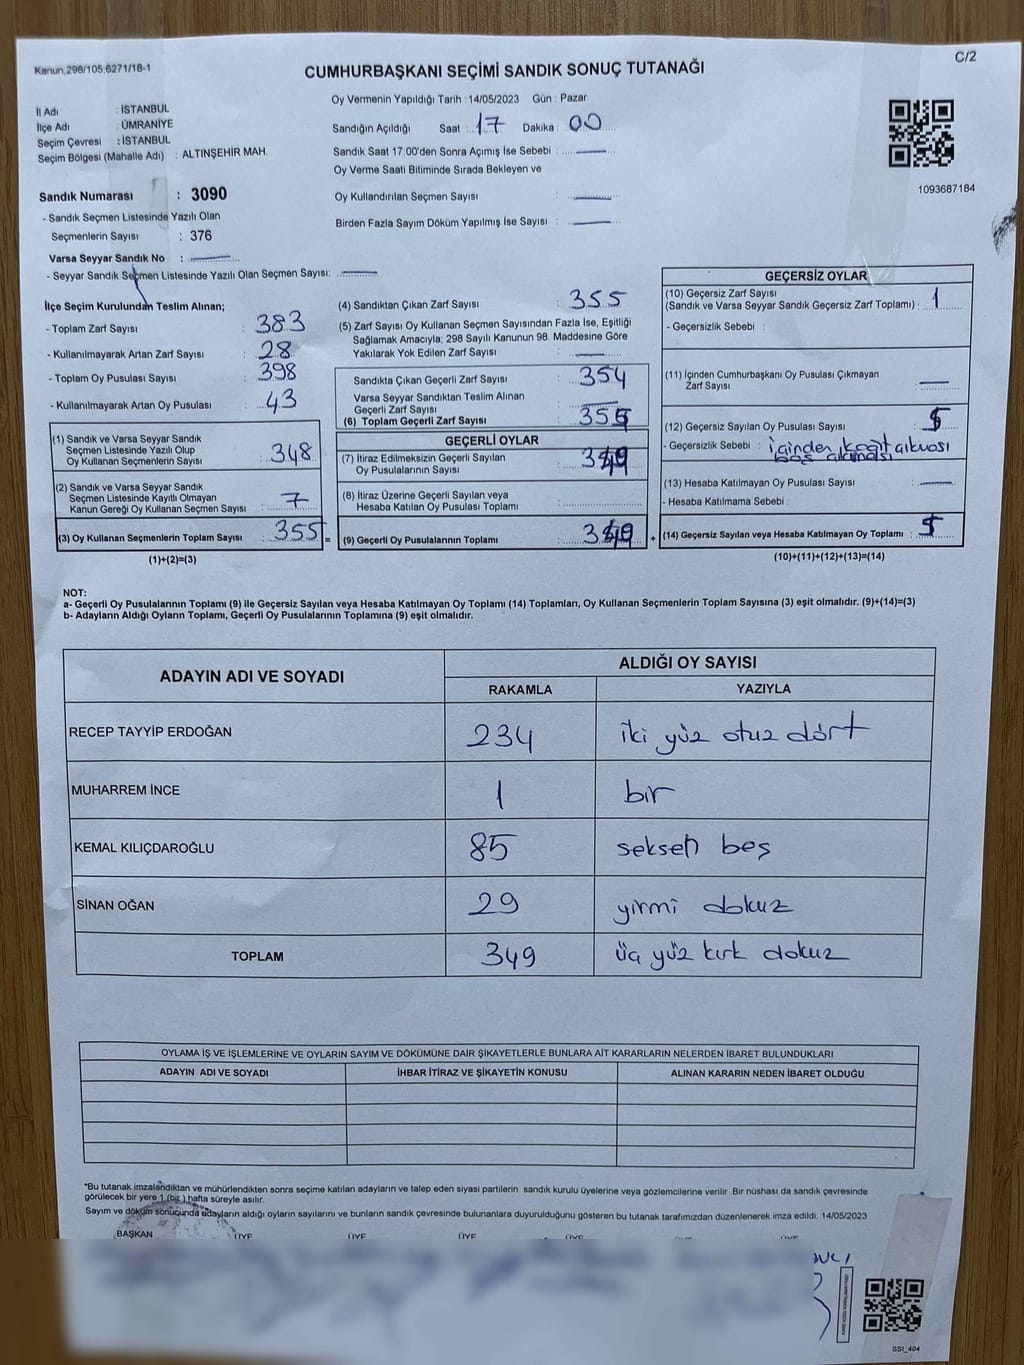 Kanun,298/105;6271/18-1
C/2
CUMHURBAŞKANI SEÇİMİ SANDIK SONUÇ TUTANAĞI
İl Adı : İSTANBUL
İlçe Adı : ÜMRANİYE
Seçim Çevresi : İSTANBUL
Seçim Bölgesi (Mahalle Adı) : ALTINŞEHİR MAH.
Sandık Numarası : 3090
- Sandık Seçmen Listesinde Yazılı Olan
Seçmenlerin Sayısı : 376
Varsa Seyyar Sandık No :
- Seyyar Sandık Seçmen Listesinde Yazılı Olan Seçmen Sayısı:
Oy Vermenin Yapıldığı Tarih : 14/05/2023 Gün : Pazar
Sandığın Açıldığı Saat : 17 Dakika : 00
Sandık Saat 17:00'den Sonra Açımış İse Sebebi :
Oy Verme Saati Bitiminde Sırada Bekleyen ve
Oy Kullandırılan Seçmen Sayısı :
Birden Fazla Sayım Döküm Yapılmış İse Sayısı :
1093687184
İlçe Seçim Kurulundan Teslim Alınan;
- Toplam Zarf Sayısı : 383
- Kullanılmayarak Artan Zarf Sayısı : 28
- Toplam Oy Pusulası Sayısı : 398
- Kullanılmayarak Artan Oy Pusulası : 43
(1) Sandık ve Varsa Seyyar Sandık
Seçmen Listesinde Yazılı Olup
Oy Kullanan Seçmenlerin Sayısı : 348
(2) Sandık ve Varsa Seyyar Sandık
Seçmen Listesinde Kayıtlı Olmayan
Kanun Gereği Oy Kullanan Seçmen Sayısı : 7
(3) Oy Kullanan Seçmenlerin Toplam Sayısı : 355 =
(1)+(2)=(3)
(4) Sandıktan Çıkan Zarf Sayısı : 355
(5) Zarf Sayısı Oy Kullanan Seçmen Sayısından Fazla İse, Eşitliği
Sağlamak Amacıyla; 298 Sayılı Kanunun 98. Maddesine Göre
Yakılarak Yok Edilen Zarf Sayısı :
Sandıkta Çıkan Geçerli Zarf Sayısı : 354
Varsa Seyyar Sandıktan Teslim Alınan
Geçerli Zarf Sayısı :
(6) Toplam Geçerli Zarf Sayısı :
GEÇERLİ OYLAR
(7) İtiraz Edilmeksizin Geçerli Sayılan
Oy Pusulalarının Sayısı :
(8) İtiraz Üzerine Geçerli Sayılan veya
Hesaba Katılan Oy Pusulası Toplamı :
(9) Geçerli Oy Pusulalarının Toplamı : +
GEÇERSİZ OYLAR
(10) Geçersiz Zarf Sayısı
(Sandık ve Varsa Seyyar Sandık Geçersiz Zarf Toplamı) : 1
- Geçersizlik Sebebi :
(11) İçinden Cumhurbaşkanı Oy Pusulası Çıkmayan
Zarf Sayısı :
(12) Geçersiz Sayılan Oy Pusulası Sayısı :
- Geçersizlik Sebebi : içinden
(13) Hesaba Katılmayan Oy Pusulası Sayısı :
- Hesaba Katılmama Sebebi :
(14) Geçersiz Sayılan veya Hesaba Katılmayan Oy Toplamı :
(10)+(11)+(12)+(13)=(14)
NOT:
a- Geçerli Oy Pusulalarının Toplamı (9) ile Geçersiz Sayılan veya Hesaba Katılmayan Oy Toplamı (14) Toplamları, Oy Kullanan Seçmenlerin Toplam Sayısına (3) eşit olmalıdır. (9)+(14)=(3)
b- Adayların Aldığı Oyların Toplamı, Geçerli Oy Pusulalarının Toplamına (9) eşit olmalıdır.
ADAYIN ADI VE SOYADI ALDIĞI OY SAYISI
RAKAMLA YAZIYLA
RECEP TAYYİP ERDOĞAN 234 iki yüz otuz dört
MUHARREM İNCE 1 bir
KEMAL KILIÇDAROĞLU 85 seksen beş
SİNAN OĞAN 29 yirmi dokuz
TOPLAM 349 üç yüz kırk dokuz
OYLAMA İŞ VE İŞLEMLERİNE VE OYLARIN SAYIM VE DÖKÜMÜNE DAİR ŞİKAYETLERLE BUNLARA AİT KARARLARIN NELERDEN İBARET BULUNDUKLARI
ADAYIN ADI VE SOYADI İHBAR İTİRAZ VE ŞİKAYETİN KONUSU ALINAN KARARIN NEDEN İBARET OLDUĞU
*Bu tutanak imzalandıktan ve mühürlendikten sonra seçime katılan adayların ve talep eden siyasi partilerin sandık kurulu üyelerine veya gözlemcilerine verilir .Bir nüshası da sandık çevresinde
görülecek bir yere 1 (bir ) hafta süreyle asılır.
Sayım ve döküm sonucunda adayların aldığı oyların sayılarını ve bunların sandık çevresinde bulunanlara duyurulduğunu gösteren bu tutanak tarafımızdan düzenlenerek imza edildi. 14/05/2023
BAŞKAN ÜYE ÜYE ÜYE ÜYE
SSI_404